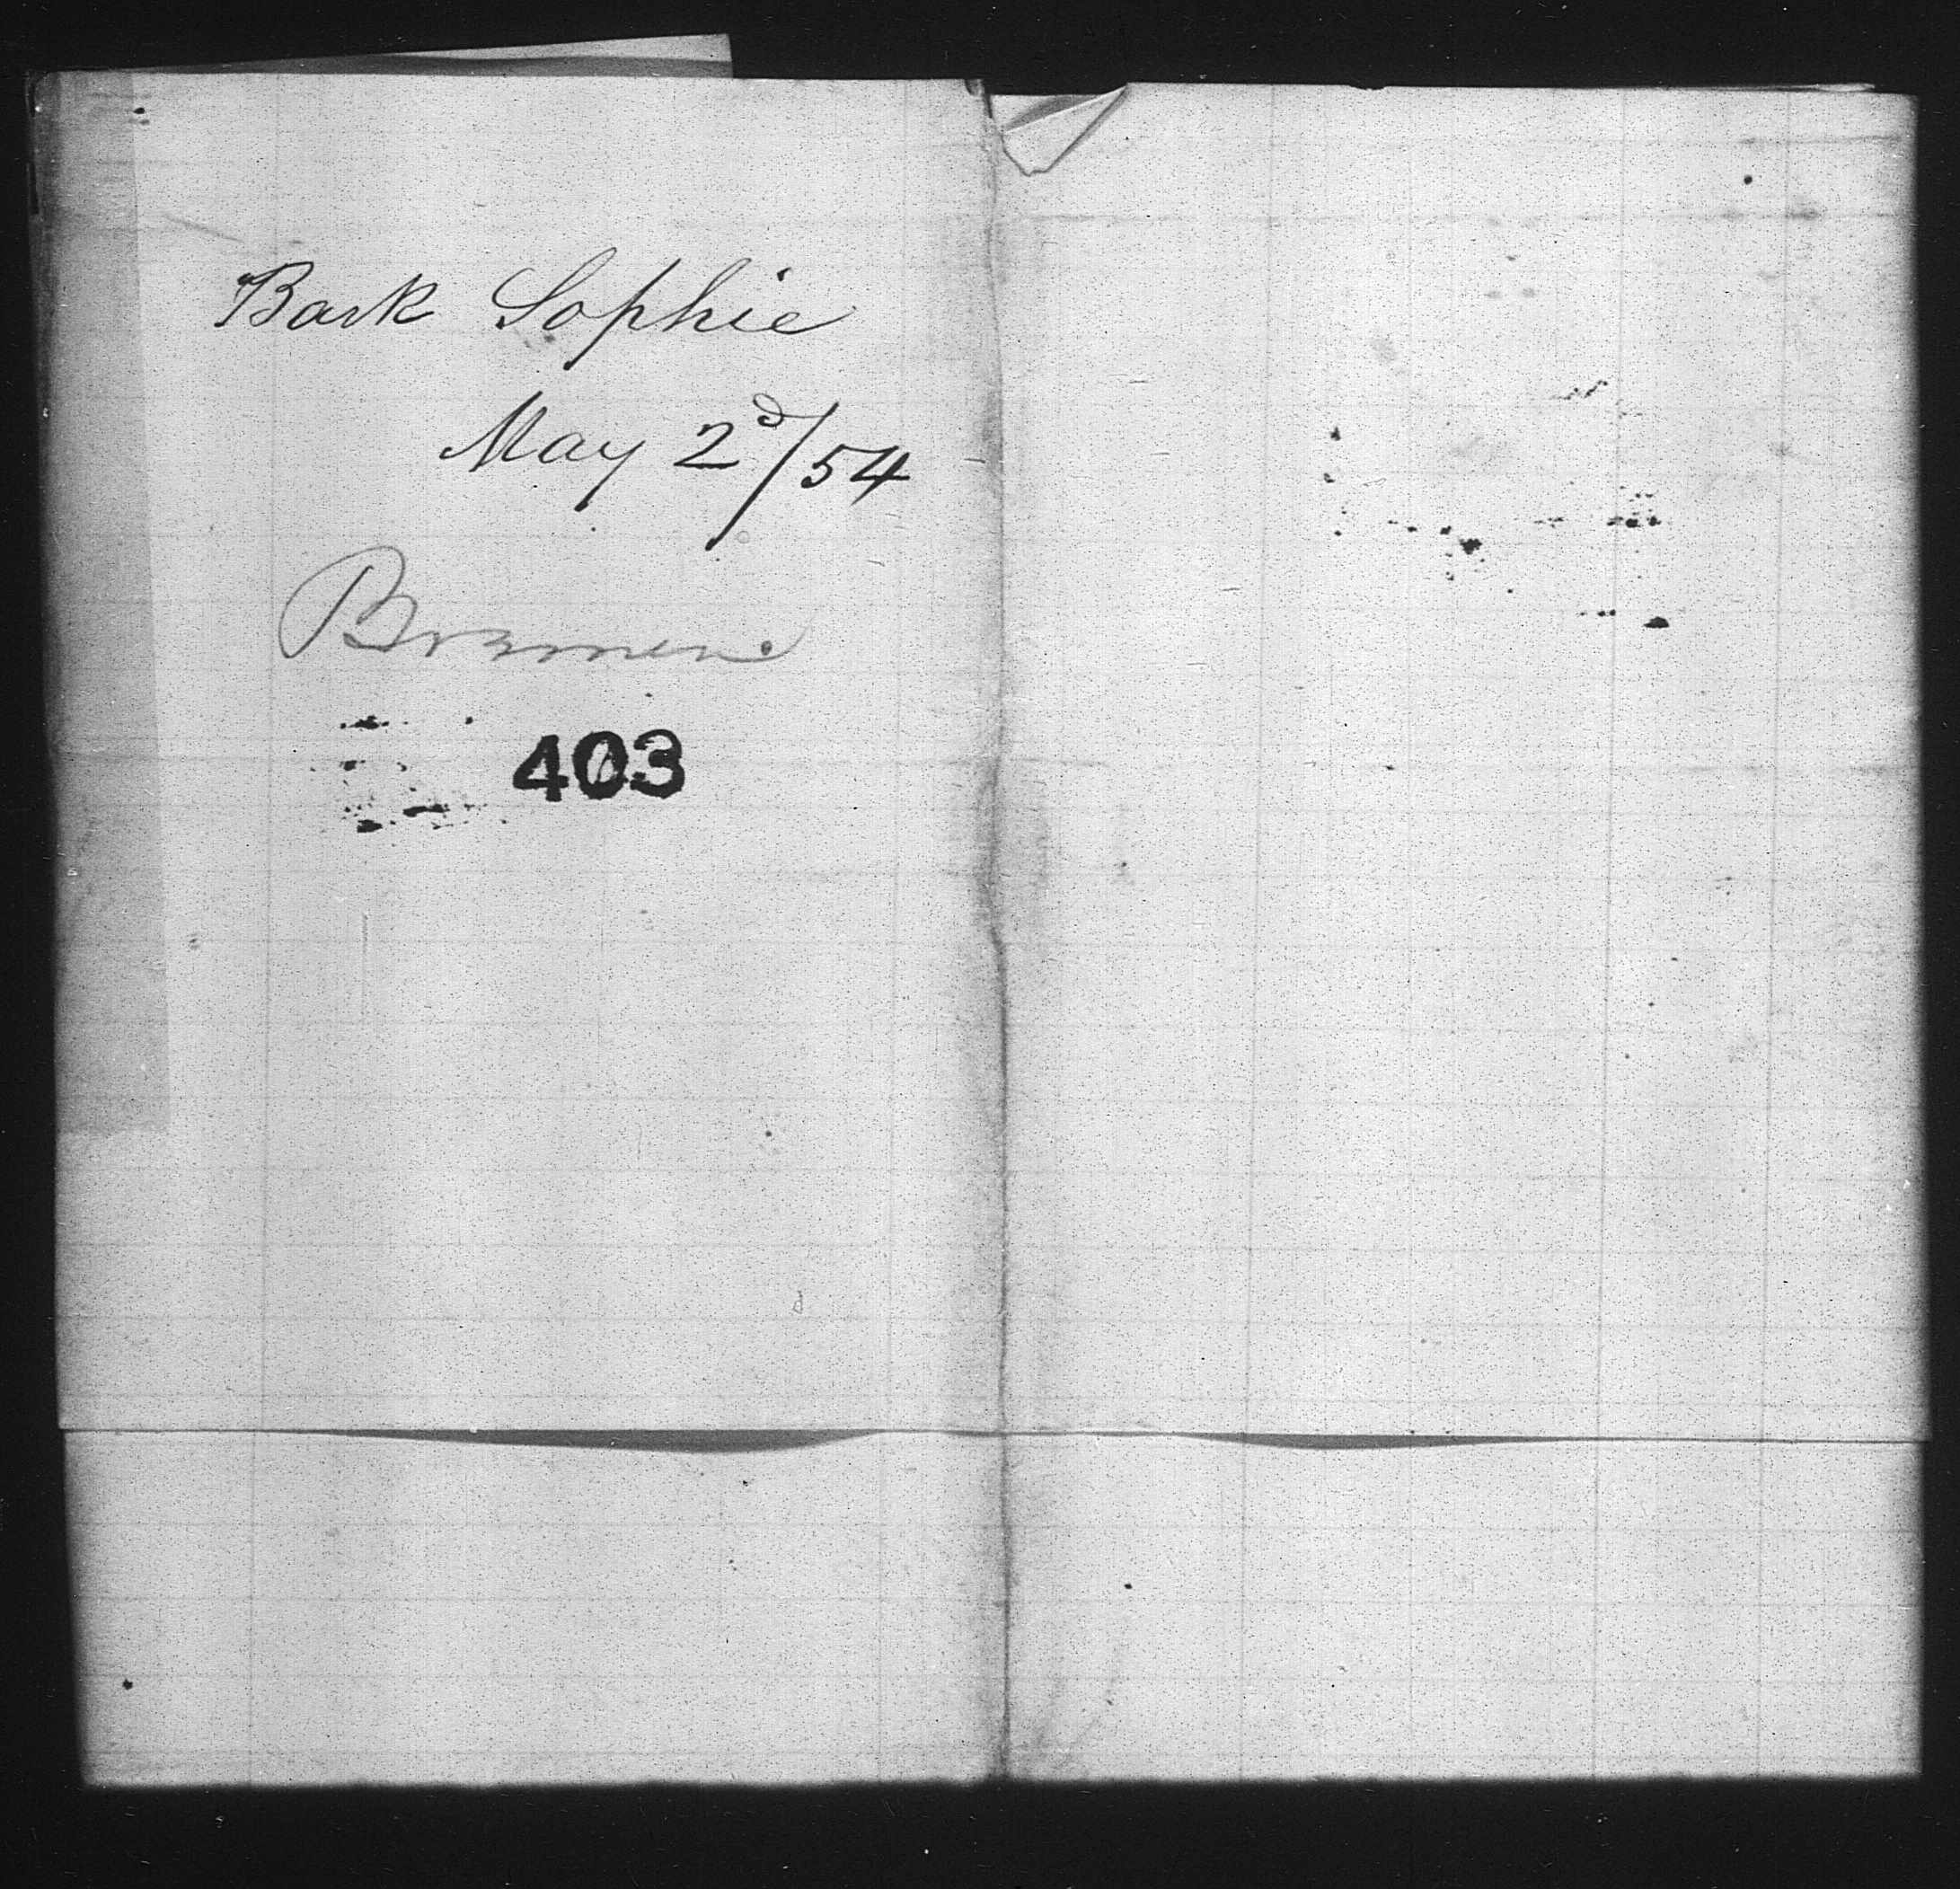 Bark Sophie
May 2d/54
Bremen.
403